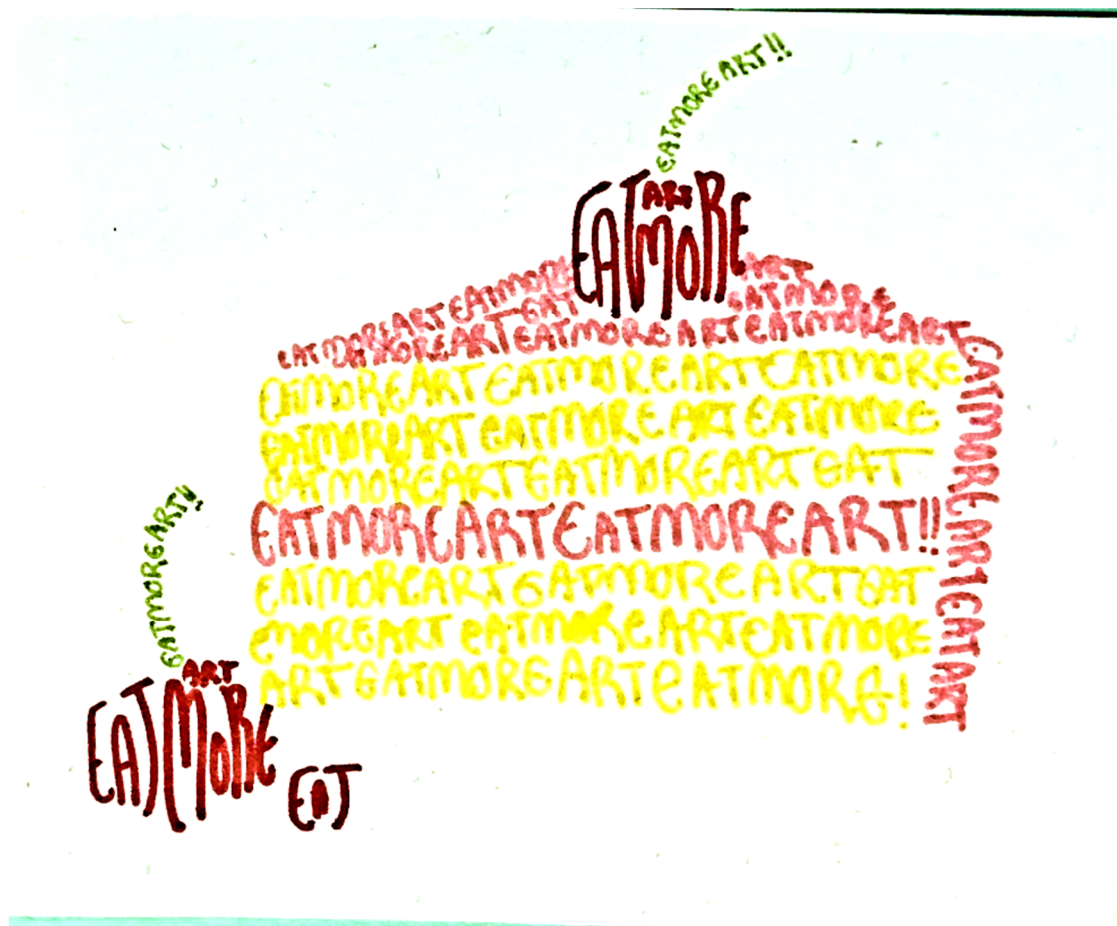 EATMOREART!!
EAT ART MORE
EATMOREARTEATMORE ART
EAT EATMORE
MOREARTEATMOREARTEATMOREART
EATMOREARTEATMOREARTEATMORE
EATMOREARTEATMOREARTEATMORE
EATMOREARTEATMOREARTEAT
EATMOREARTEATMOREART!!
EATMOREARTEATMOREARTEAT
EMOREARTEATMOREARTEATMORE
ARTEATMOREARTEATMORE!
EATMOREARTEATART
EATMOREART!!
EAT ART MORE
EAT